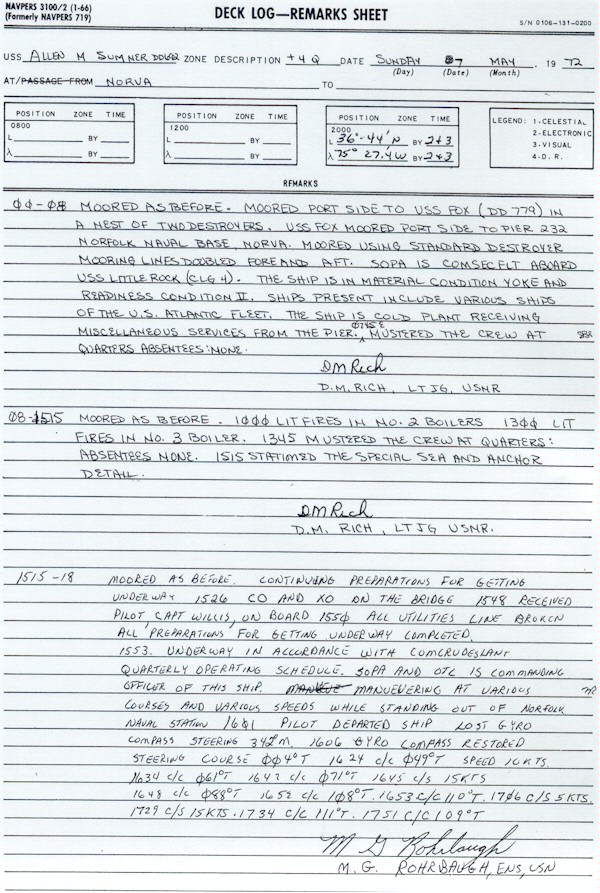 NAVPERS 3100/2 (1-66)
(Formerly NAVPERS 719)
DECK LOG—REMARKS SHEET
S/N 0106-131-0200
USS ALLEN M SUMNER DD692 ZONE DESCRIPTION +4 Q DATE SUNDAY 07 MAY 19 72
(Day) (Date) (Month)
AT/PASSAGE FROM NORVA TO
POSITION ZONE TIME
0800
L BY
λ BY
POSITION ZONE TIME
1200
L BY
λ BY
POSITION ZONE TIME
2000
L 36°-44'N BY 2+3
λ 75° 27.4W BY 2+3
LEGEND: 1-CELESTIAL
2-ELECTRONIC
3-VISUAL
4-D.R.
REMARKS
00-08 MOORED AS BEFORE. MOORED PORT SIDE TO USS FOX (DD 779) IN
A NEST OF TWO DESTROYERS. USS FOX MOORED PORT SIDE TO PIER 232
NORFOLK NAVAL BASE, NORVA. MOORED USING STANDARD DESTROYER
MOORING LINES DOUBLED FORE AND AFT. SOPA IS COMSECFLT ABOARD
USS LITTLE ROCK (CLG 4). THE SHIP IS IN MATERIAL CONDITION YOKE AND
READINESS CONDITION II. SHIPS PRESENT INCLUDE VARIOUS SHIPS
OF THE U.S. ATLANTIC FLEET. THE SHIP IS COLD PLANT RECEIVING
MISCELLANEOUS SERVICES FROM THE PIER. 0745 MUSTERED THE CREW AT
QUARTERS ABSENTEES: NONE.
DM Rich
D.M. RICH, LTJG, USNR
08-1515 MOORED AS BEFORE. 1000 LIT FIRES IN NO. 2 BOILERS 1300 LIT
FIRES IN NO. 3 BOILER. 1345 MUSTERED THE CREW AT QUARTERS:
ABSENTEES NONE. 1515 STATIONED THE SPECIAL SEA AND ANCHOR
DETAIL.
DM Rich
D.M. RICH, LTJG USNR.
1515-18 MOORED AS BEFORE. CONTINUING PREPARATIONS FOR GETTING
UNDERWAY 1526 CO AND XO ON THE BRIDGE 1548 RECEIVED
PILOT, CAPT WILLIS, ON BOARD 1550 ALL UTILITIES LINE BROKEN
ALL PREPARATIONS FOR GETTING UNDERWAY COMPLETED.
1553. UNDERWAY IN ACCORDANCE WITH COMCRUDESLANT
QUARTERLY OPERATING SCHEDULE. SOPA AND OTC IS COMMANDING
OFFICER OF THIS SHIP. MANUEVERING AT VARIOUS
COURSES AND VARIOUS SPEEDS WHILE STANDING OUT OF NORFOLK
NAVAL STATION 1601 PILOT DEPARTED SHIP LOST GYRO
COMPASS STEERING 342°M. 1606 GYRO COMPASS RESTORED
STEERING COURSE 004°T 1624 C/C 049°T SPEED 10 KTS.
1634 C/C 061°T 1642 C/C 071°T 1645 C/S 15KTS
1648 C/C 088°T 1652 C/C 108°T. 1653 C/C 110°T. 1706 C/S 5 KTS.
1729 C/S 15 KTS. 1734 C/C 111°T. 1751 C/C 109°T
M G Rohrbaugh
M. G. ROHRBAUGH, ENS, USN